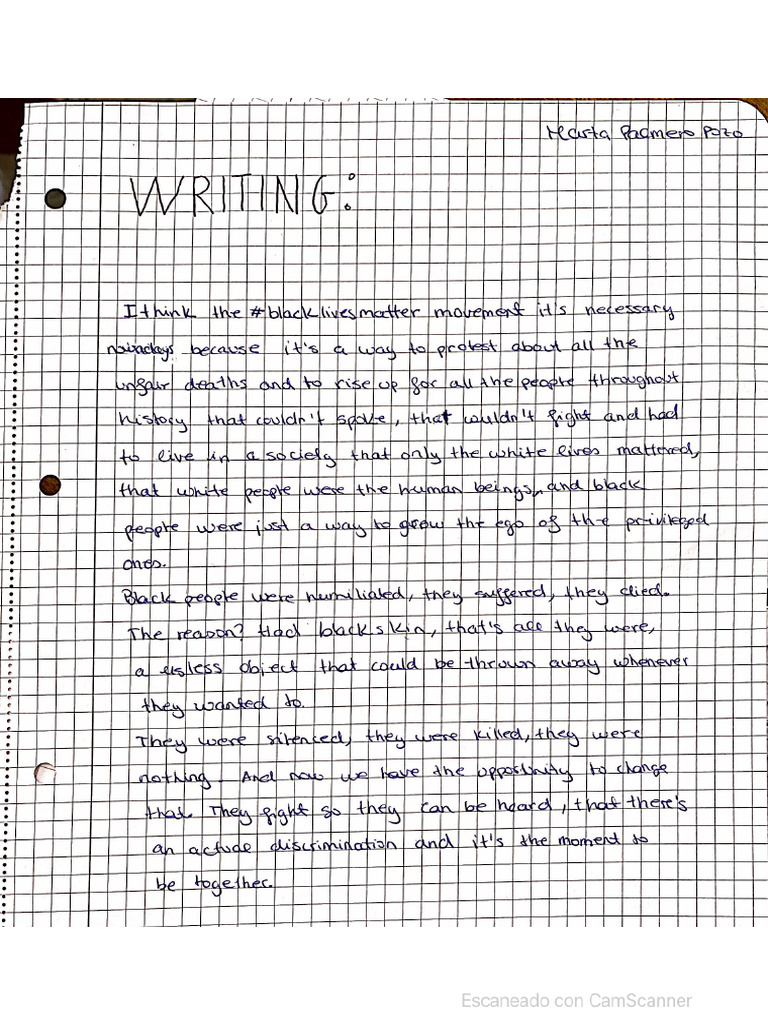 Marta Palmero Pozo
WRITING:
I think the #blacklivesmatter movement it's necessary
nowadays because it's a way to protest about all the
unfair deaths and to rise up for all the people throughout
history that couldn't spoke, that couldn't fight and had
to live in a society that only the white lives mattered,
that white people were the human beings, and black
people were just a way to grow the ego of the privileged
ones.
Black people were humiliated, they suffered, they died.
The reason? Had black skin, that's all they were,
a usless object that could be thrown away whenever
they wanted to.
They were silenced, they were killed, they were
nothing. And now we have the opportunity to change
that. They fight so they can be heard, that there's
an discrimination and it's the moment to
be together.
Escaneado con CamScanner